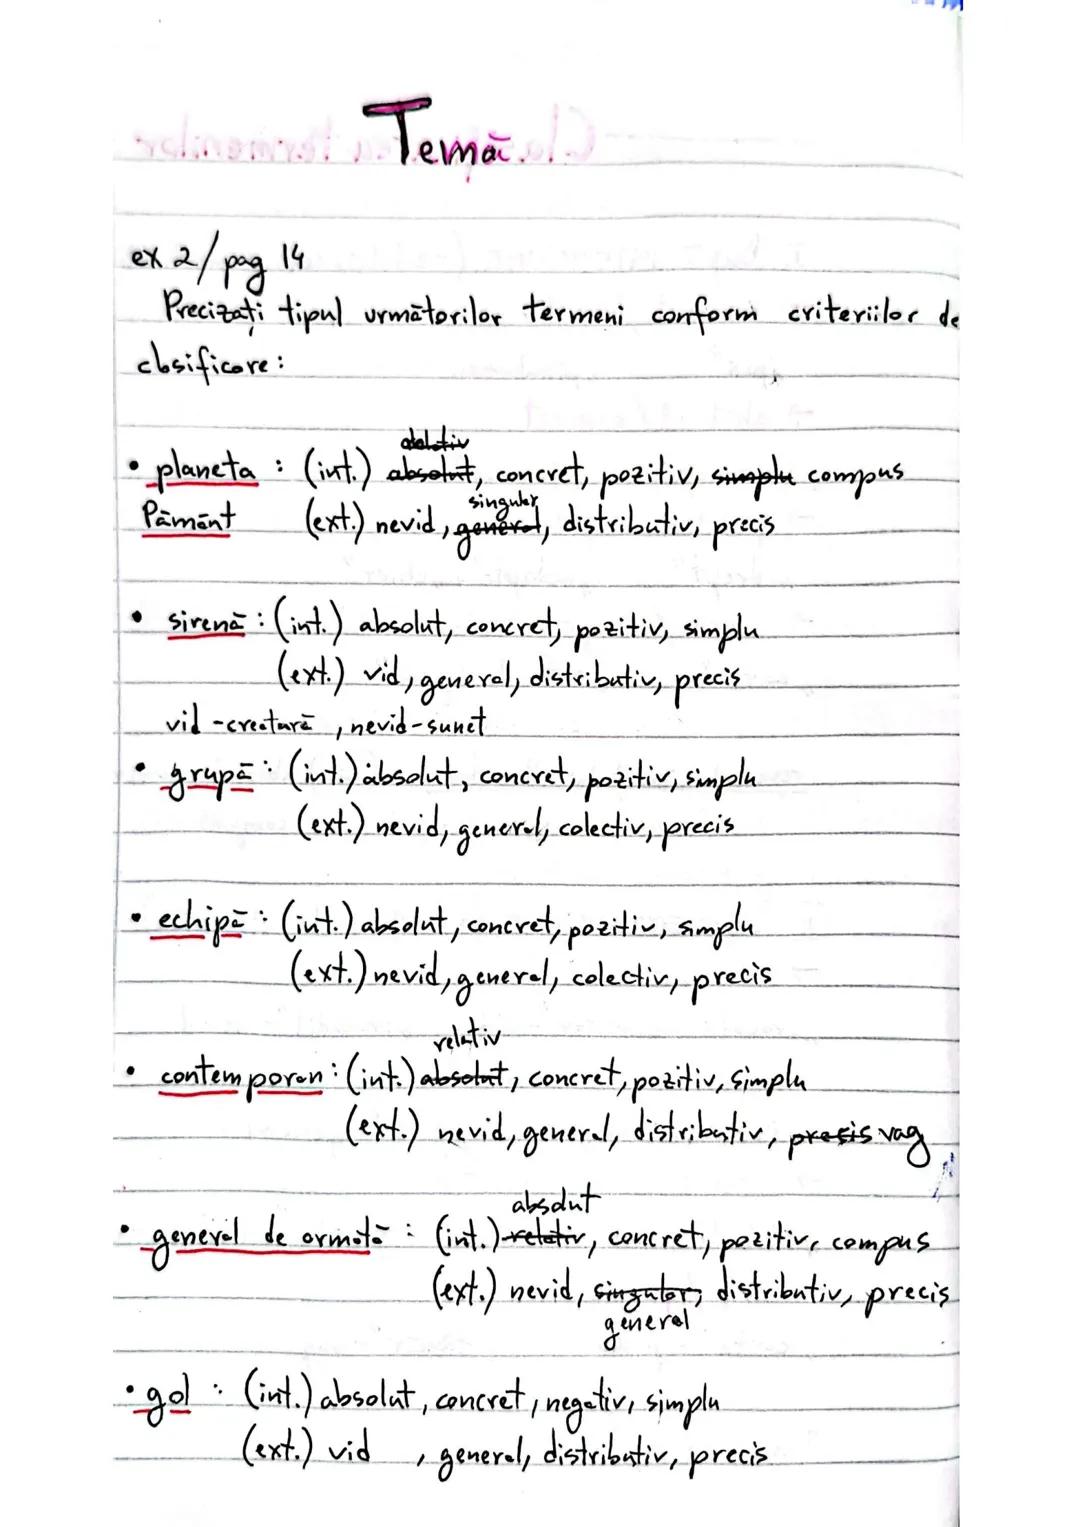 Temă
ex 2/pag 14
Precizați tipul următorilor termeni conform criteriilor de
clasificare:
• planeta : (int.) absolut, concret, pozitiv, simplu compus
singular
Pământ (ext.) nevid, general, distributiv, precis
• sirenă : (int.) absolut, concret, pozitiv, simplu
(ext.) vid, general, distributiv, precis
vid - creatură , nevid - sunet
• grupă : (int.) absolut, concret, pozitiv, simplu
(ext.) nevid, general, colectiv, precis
• echipă : (int.) absolut, concret, pozitiv, simplu
(ext.) nevid, general, colectiv, precis
relativ
• contemporan : (int.) absolut, concret, pozitiv, simplu
(ext.) nevid, general, distributiv, precis vag
absolut
• general de armată : (int.) relativ, concret, pozitiv, compus
(ext.) nevid, singular, distributiv, precis
general
• gol : (int.) absolut, concret, negativ, simplu
(ext.) vid , general, distributiv, precis